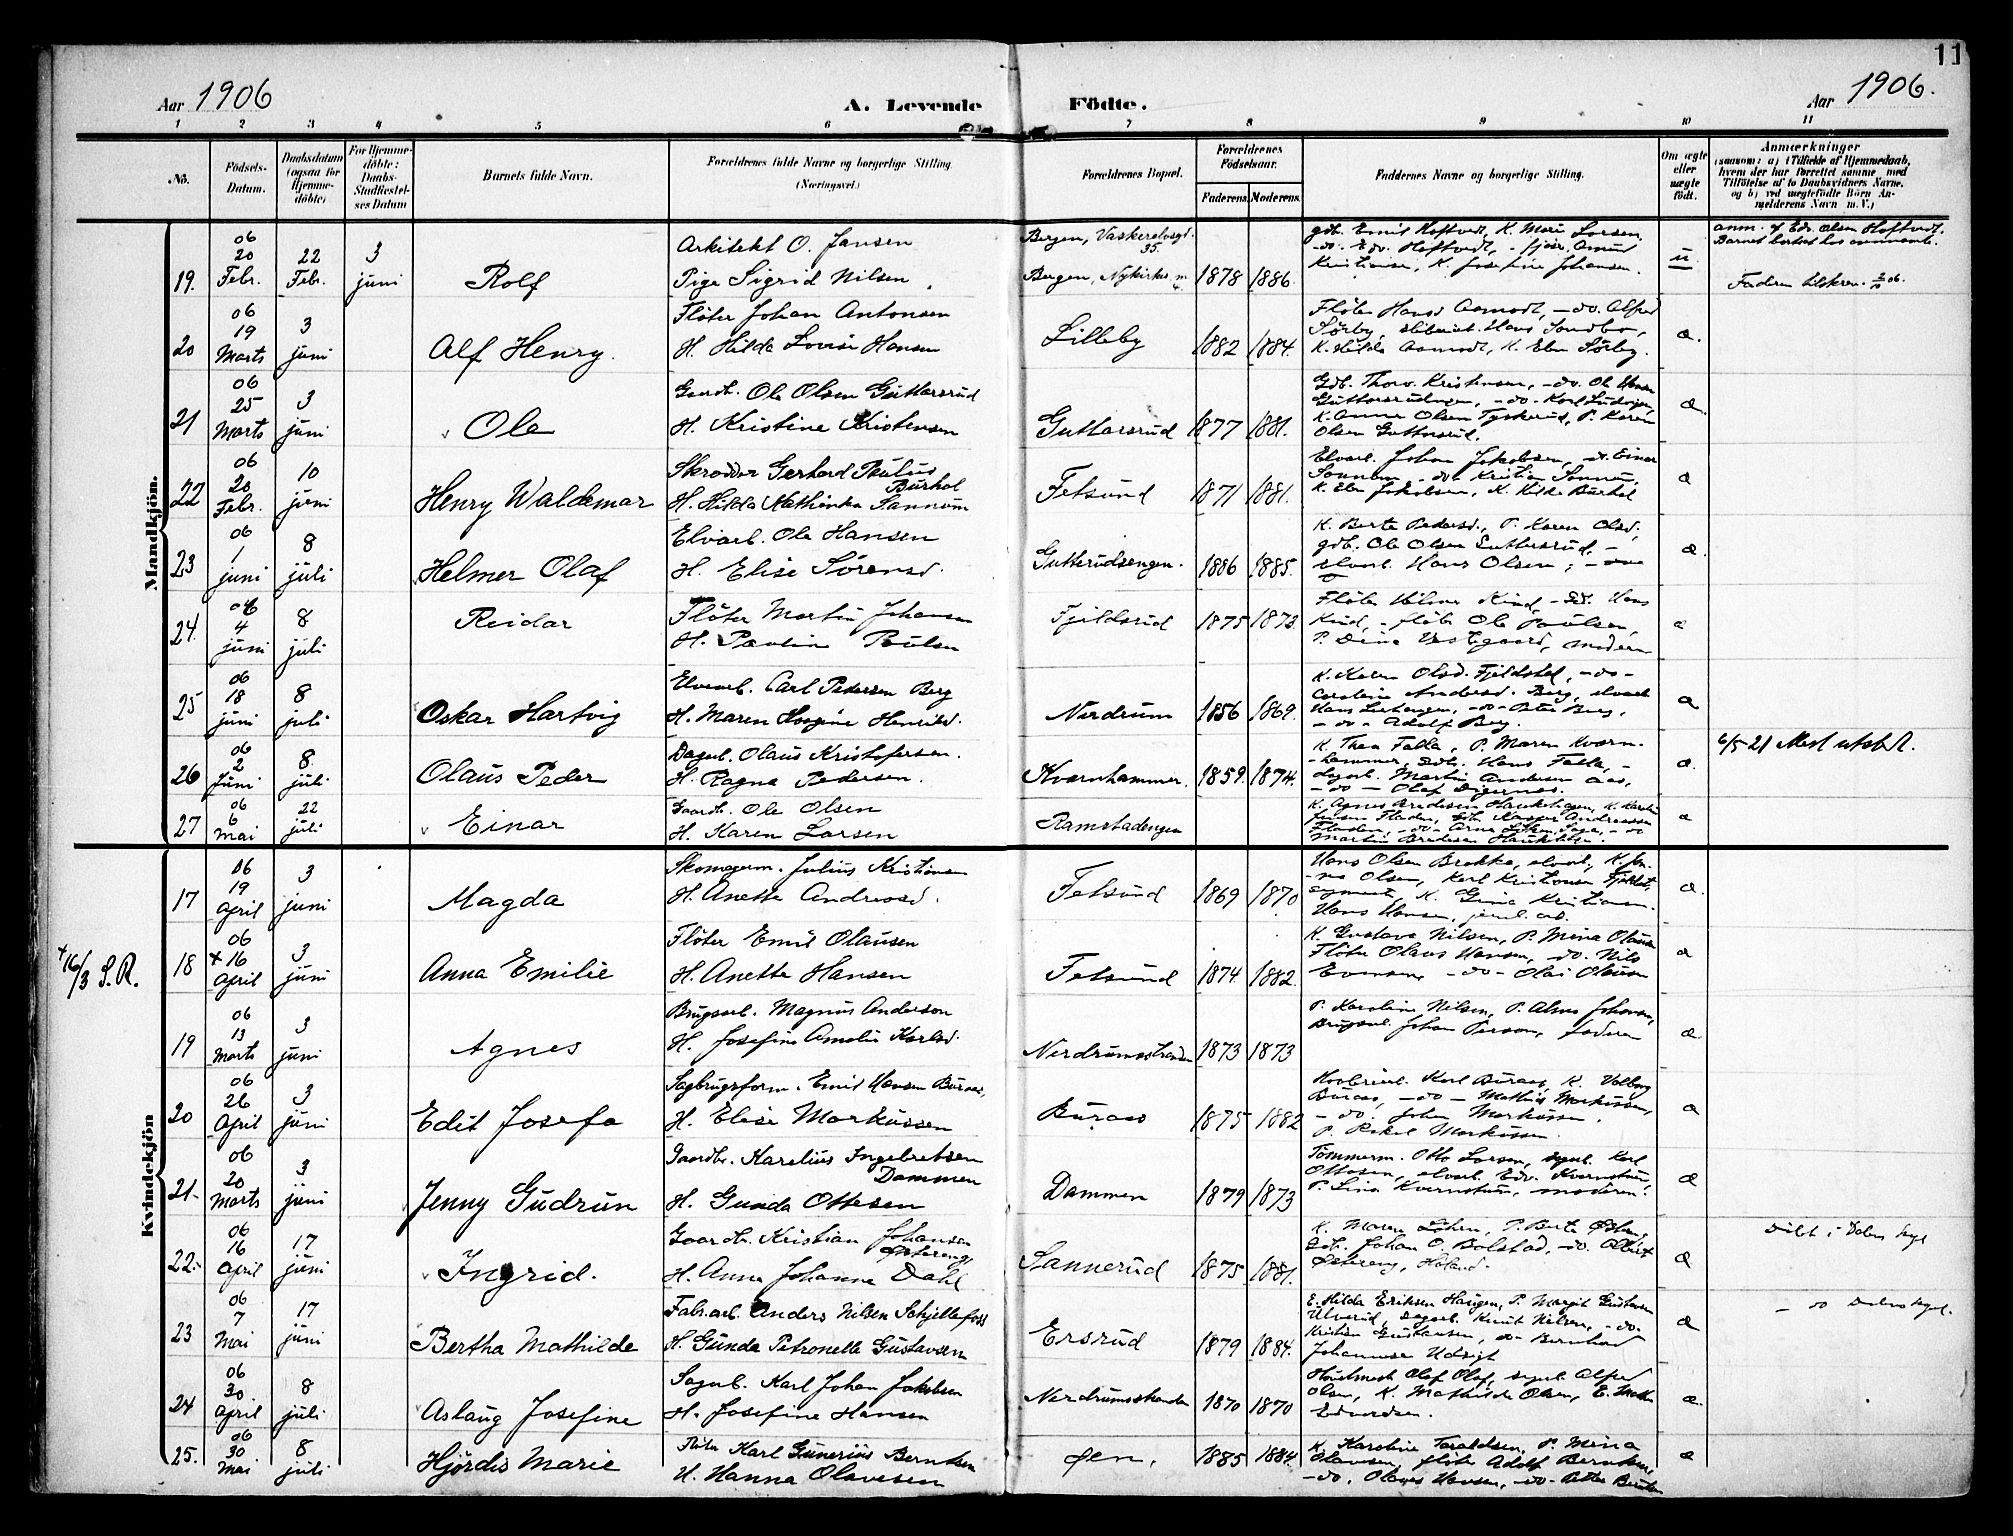 11
Aar 1906
A. Levende Födte.
Aar 1906.
1 2 3 4 5 6 7 8 9 10 11
No.
Födsels-
Datum.
Daabsdatum
(ogsaa for
Hjemme-
döbte)
For Hjemme-
döbte:
Daabs-
Stadfæstel-
ses Datum
Barnets fulde Navn.
Forældrenes fulde Navne og borgerlige Stilling
(Næringsvei.)
Forældrenes Bopæl.
Forældrenes
Födselsaar.
Faderens Moderens.
Faddernes Navne og borgerlige Stilling.
Om ægte
eller
uægte
födt.
Anmærkninger
(saasom: a) i Tilfælde af Hjemmedaab,
hvem der har forrettet samme, med
Tilföielse af to Daabsvidners Navne,
og b) ved uægtefödte Börn An-
melderens Navn m. V.)
Mandkjön.
19. 06 20 Febr. 22 Febr. 3 juni Rolf
Arkitekt O. Jansen
Pige Sigrid Nilsen
Bergen, 35.
Bergen, Nykirkes 1878 1886
gdb. Emil Hoftvedt, K. Marie Larsen,
-do- Edv. Hoftvedt,
Kristianse, K. Josefine Johansen.
u.
anm. af Edv. Olsen Hoftvedt.
20 06 19 Marts 3 juni Alf Henry.
Fløter Johan Antonsen
H. Hilda Lovise Hansen
Lilleby 1882 1884.
Fløter Hans Aamodt, -do- Alfred
Sørby, Hans
K. Hilda Aamodt, K. Elen Sørby.
a.
21 06 25 Marts 3 juni Ole
Gaardb. Ole Olsen Guttersrud
H. Kristine Kristensen
Guttersrud 1877 1881.
Gdb. Thorv. Kristensen, -do- Ole
-do- Karl Ludvigsen,
K. Anne Olsen Tyskerud, P. Karen
Olsen Guttersrud.
a.
22 06 20 Febr. 10 juni Henry Waldemar
Skrædder Gerhard Paulus
Burhol
H. Hilda Mathinka Sannum
Fetsund 1871 1881.
Elvarb. Johan Jakobsen, -do- Einar
Sannum -do- Kristian Sannum,
K. Elen Jakobsen, K. Hilda Burhol
a
23 06 1 juni 8 juli Helmer Olaf
Elvarb. Ole Hansen
H. Elise Sørensd.
Gutterudsengen. 1886 1885.
K. Berte Pedersd., P. Karen Olsd.,
gdb. Ole Olsen Guttersrud, -
elvarb. Hans Olsen, -
a.
24. 06 4 juni 8 juli Reidar
Fløter Martin Johansen
H. Paulin Paulsen
Fjeldsrud 1875 1873.
Fløter Hilmar Kind, - Hans
Kind, - fløter Ole Paulsen,
P. Dina Vestgaard, moderen
a
25 06 18 juni 8 juli Oskar Hartvig
Elvearb. Carl Pedersen Berg
H. Maren Henriksd.
Nerdrum 1856 1869.
K. Karen Olsd. Fjeldstad, -do-
Caroline Andersd. Berg, elvarb.
Hans -do- Peter Berg,
-do- Adolf Berg.
a
26 06 2 Juni 8 juli Olaus Peder
Dagarb. Olaus Kristofersen.
H. Ragna Pedersen.
Kvernhammer. 1859. 1874.
K. Thea Falla, P. Maren Kvern-
-hammer, Gdb. Hans Falla, -
dagarb. Martin Andersen Aas,
-do- Olaf Digernæs.
a.
6/5 21 Attest utstedt.
27 06 6 Mai 22 juli Einar
Gaardb. Ole Olsen
H. Karen Larsen
Ramstadengen
K. Agnes Bredesen Haukhagen, K. Karoline
Jensen Fladen, Gdb. Kasper Andreassen
Fladen, -do- Arne -do
Martin Bredesen Haukhagen.
a
Kvindekjön
17 06 19 April 3 juni Magda
Skomagerm. Julius Kristiansen
H. Anette Andreasd.
Fetsund 1869 1870
Hans Olsen Brakke, elvarb.,
Olsen, Karl Kristiansen Fjeldstad,
K. Gina Kristiansen.
Hans Hansen,
a.
+16/3 S.R.
18 06 +16 April 3 juni Anna Emilie
Fløter Emil Olausen
H. Anette Hansen
Fetsund 1874 1882.
K. Gustava Nilsen, P. Mina Olausen
Fløter Olaus Hansen, -do- Nils
Evensen, -do- Olai Olausen
a
19 06 13 Marts 3 juni Agnes
Brugsarb. Magnus Anderson
H. Josefine Amalie Karlsd.
Nerdrumsstranden 1873 1873
P. Karoline Nilsen, P. Alma Johansen,
Brugsarb. Johan Person, faderen
a.
20 06 26 April 3 juni Edit Josefa
Sagbrugsform. Emil Hansen Buraas,
H. Elise Markussen
Buraas 1875 1882
Karl Buraas, K. Valborg
Buraas, -do- Mathias Markussen,
-do- John Markussen.
P. Rakel Markussen.
a
21. 06 20 Marts 3 juni Jenny Gudrun
Gaardbr. Karelius Ingebretsen
Dammen
H. Gunda Ottesen
Dammen 1879 1873
Tømmerm. Otto Larsen, Karl
Ottesen, elvarb. Edv. Kvernstuen,
P. Lina Kvernstuen, moderen.
a
22. 06 16 April 17 juni Ingrid.
Gaardbr. Kristian Johansen
Østereng
H. Anna Johanne Dahl
Sannerud 1875 1881.
K. Maren Løken, P. Berte
Gdb. Johan O. Bolstad, -do- Albert
Østereng, Høland.
a
Døbt i Dalen Kapel
23 06 7 Mai 17 juni Bertha Mathilde
Fabr.arb. Anders Nilsen Schjellefoss
H. Gunda Petronelle Gustavsen
Ersrud 1879 1884.
E. Hilda Eriksen Haugen, P. Margit Gustavsen
Ulverud, Dagarb. Knut Nilsen, -do-
Kristian Gustavsen, -do- Bernhard
Johannesen Udsigt
a
- do Dalens Kapel.
24 06 30 April 8 juli Aslaug Josefine
Sagarb. Karl Johan Jakobsen
H. Josefine Hansen
Nerdrumsstranden 1870 1870
Olaf Olsen, Alfred
Olsen, K. Mathilde Olsen, E.
Edvardsen.
a.
25. 06 30 Mai 8 juli Hjørdis Marie
Fløter Karl Gunerius Berntsen
H. Hanna Olavesen
Øen, 1885 1884.
K. Karoline Taraldsen, P. Mina
Olausen, fløter Adolf Berntsen,
-do- Olaves Hansen, -do- Petter Berntsen
a